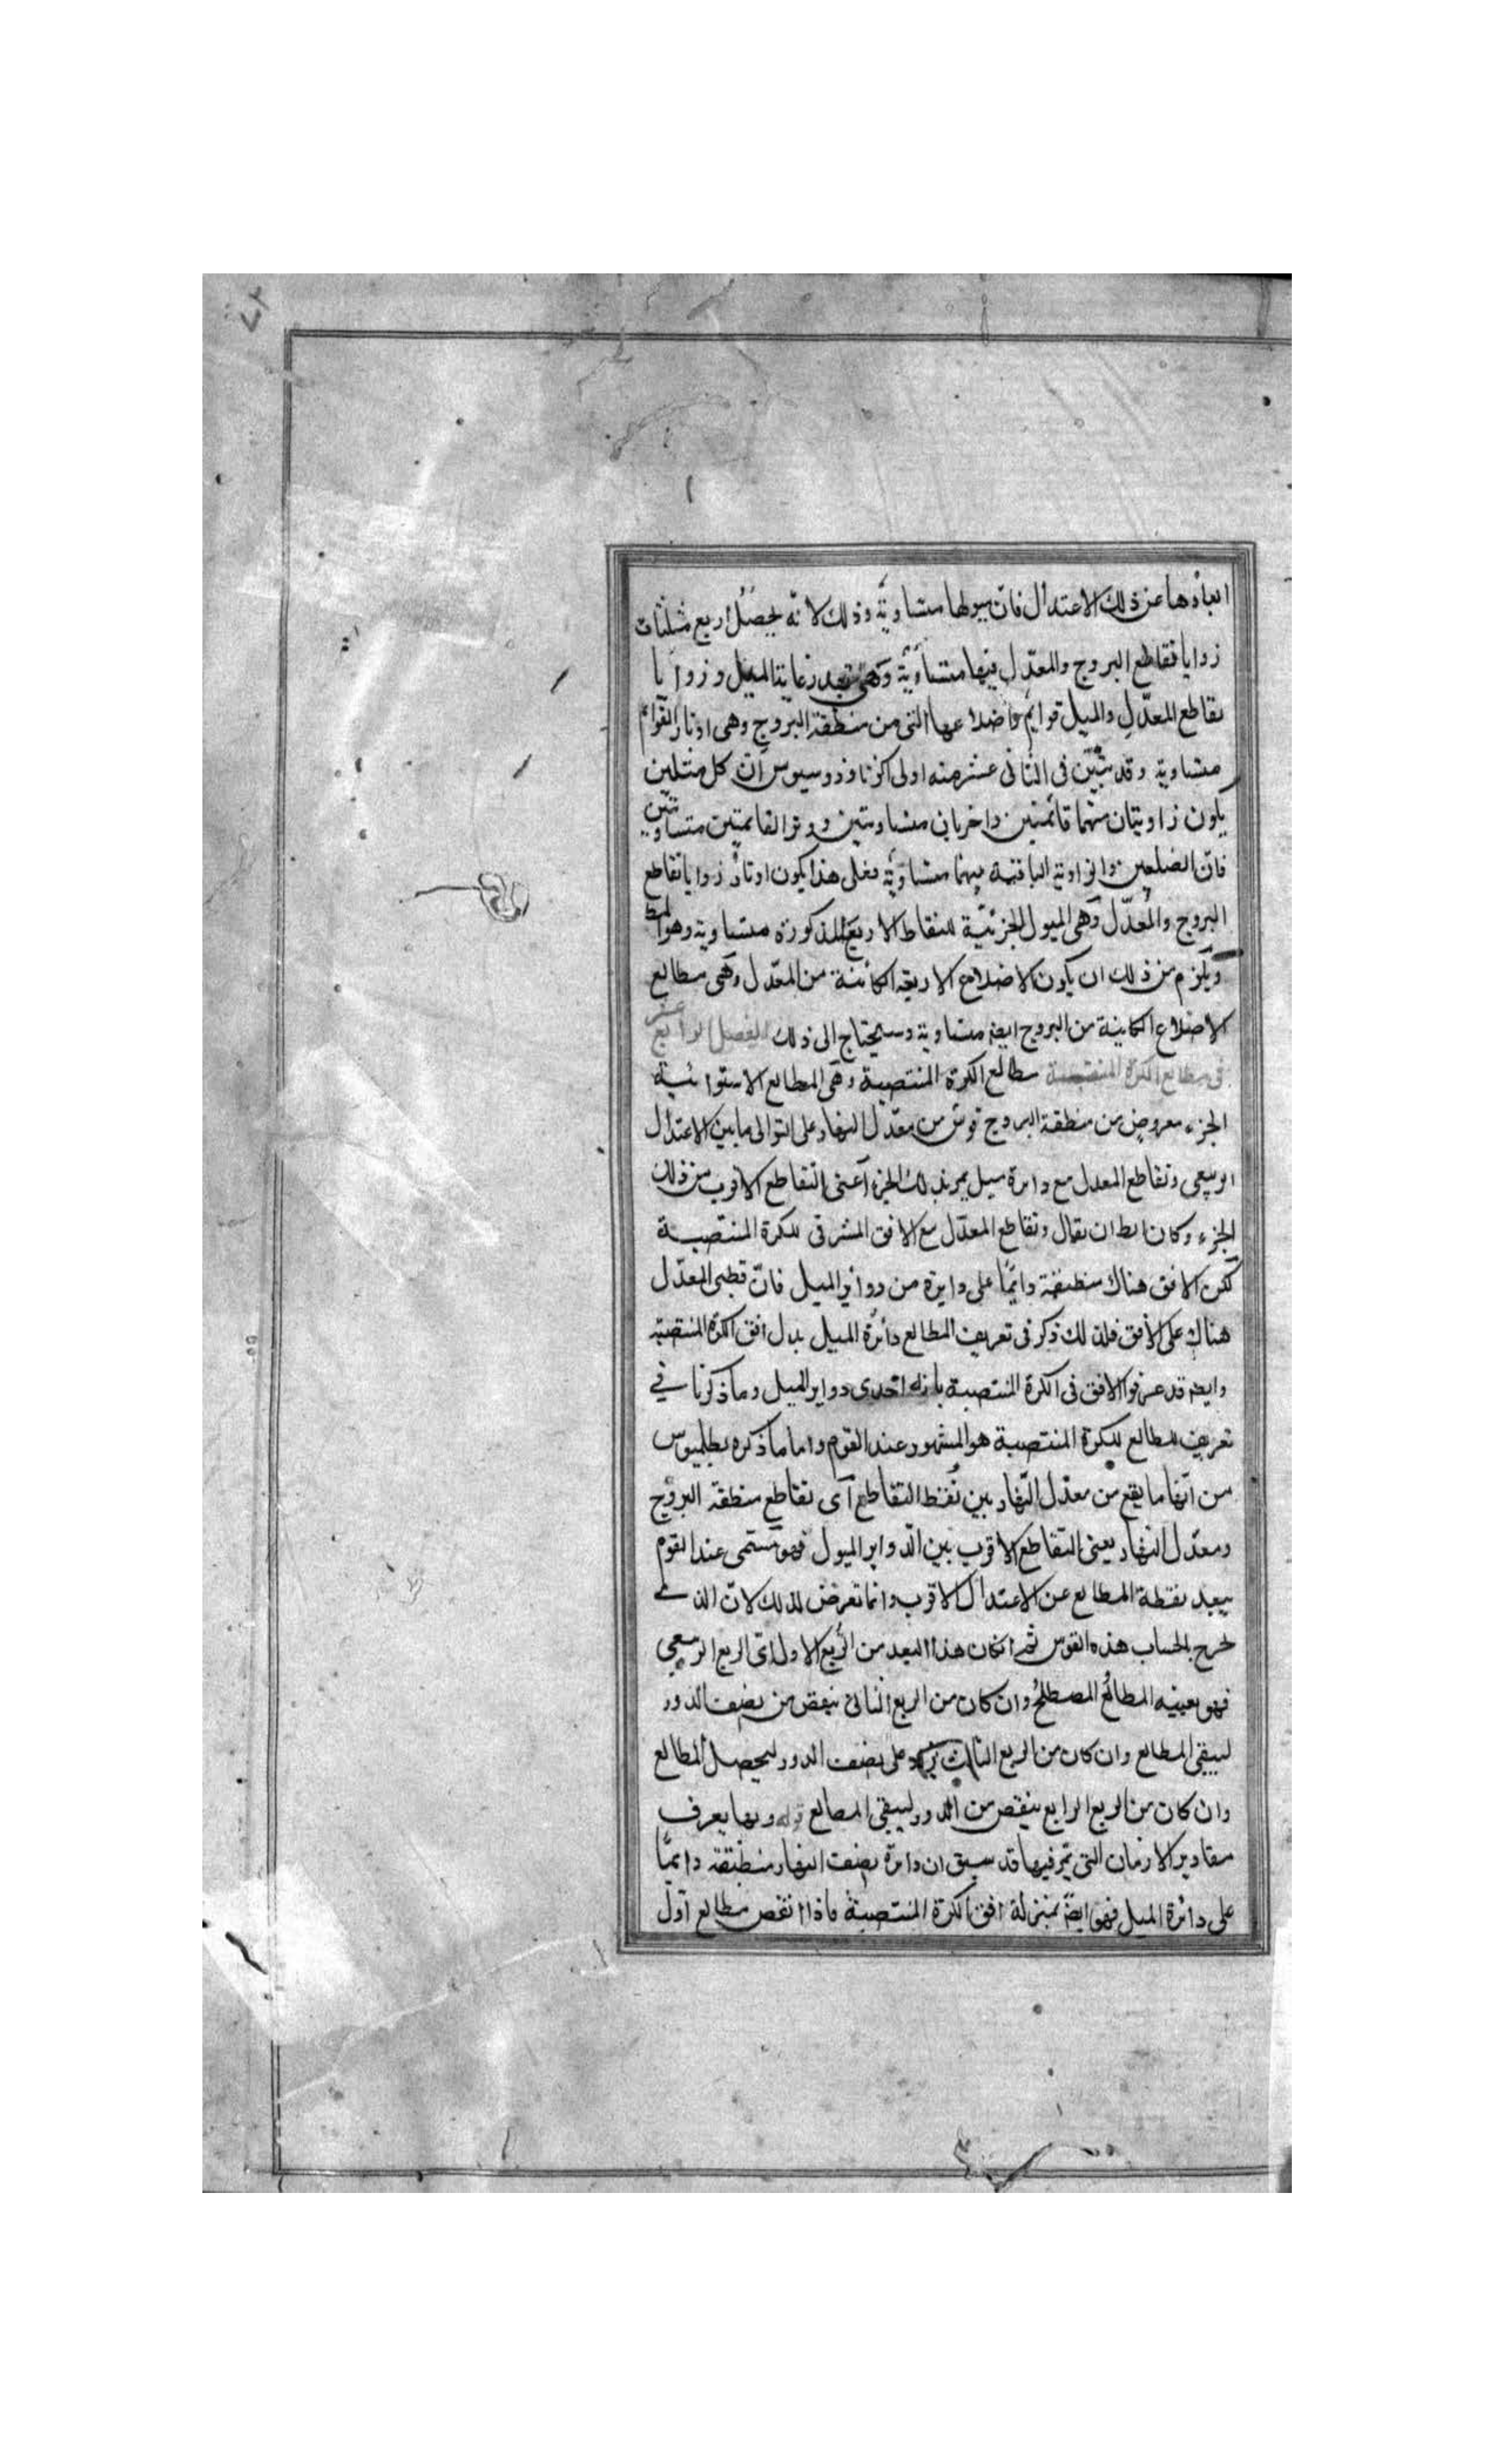 ابعادها عن ذلك الاعتدال فان ميولها متساوية وذلك لانه يحصل اربع مثلثات
زوايا تقاطع البروج والمعدّل فيها متساوية وهى بقدر غاية الميل وزوايا
تقاطع المعدّل والميل قوايم واضلاعها التى من منطقة البروج وهى اوتار القوائم
متساوية وقد تبيّن فى الثانى عشر منه اولى اكر ثاوذوسيوس انّ كل مثلثين
يكون زاويتان منهما قائمتين واخريان متساويتين ووترا القائمتين متساويتين
فانّ الضلعين والزاوية الباقية منهما متساوية فعلى هذا يكون اوتار زوايا تقاطع
البروج والمعدّل وهى الميول الجزئيّة للنقاط الاربع المذكورة متساوية وهو المط
ويلزم من ذلك ان يكون الاضلاع الاربعة الكائنة من المعدّل وهى مطالع
الاضلاع الكاينة من البروج ايضه متساوية وسيحتاج الى ذلك الفصل الرابع عشر
فى مطالع الكرة المنتصبة مطالع الكرة المنتصبة وهى المطالع الاستوائية
الجزء معروض من منطقة البروج قوس من معدّل النهار على التوالى ما بين الاعتدال
الربيعى وتقاطع المعدل مع دائرة ميل يمر بذلك الجزء اعنى التقاطع الاقرب من ذلك
الجزء وكان يط ان يقال وتقاطع المعدّل مع الافق المشرقى للكرة المنتصبة
لكن الافق هناك منطبقة دايمًا على دايرة من دوائر الميل فانّ قطبى المعدّل
هناك على الافق فلذلك ذكر فى تعريف المطالع دائرة الميل بدل افق الكرة المنتصبة
وايضه قد عرفوا الافق فى الكرة المنتصبة بانه احدى دواير الميل وما ذكرنا فى
تعريف المطالع للكرة المنتصبة هو المشهور عند القوم واما ما ذكره بطلميوس
من انّها ما يقع من معدّل النّهار بين نقط التقاطع اى تقاطع منطقة البروج
ومعدّل النهار يعنى التقاطع الاقرب بين الدواير الميول فهو مسمى عند القوم
ببعد نقطة المطالع عن الاعتدال الاقرب وانما تعرض لذلك لانّ الذى
يخرج بالحساب هذه القوس ثم ان كان هذا البعد من الربع الاول اى الربع الربيعى
فهو بعينه المطالع المصطلح وان كان من الربع الثانى ينقص من نصف الدور
ليبقى المطالع وان كان من الربع الثالث يزيد على نصف الدور ليحصل المطالع
وان كان من الربع الرابع ينقص من الدور ليبقى المطالع قوله وبها يعرف
مقادير الازمان التى تمر فيها قد سبق ان دائرة نصف النهار منطبقة دايمًا
على دائرة الميل فهو ايضًا بمنزلة افق الكرة المنتصبة فاذا انقص مطالع اوّل